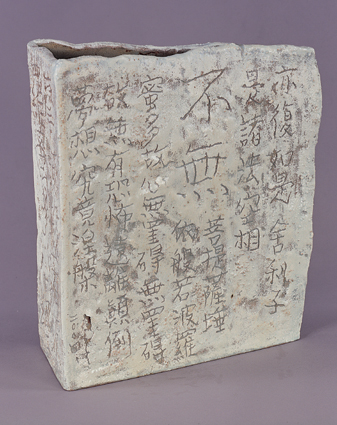 亦復如是舍利子
是諸法空相
不無
菩提薩埵
依般若波羅
蜜多故心無罣礙無罣礙
故無有恐怖遠離顛倒
夢想究竟涅槃